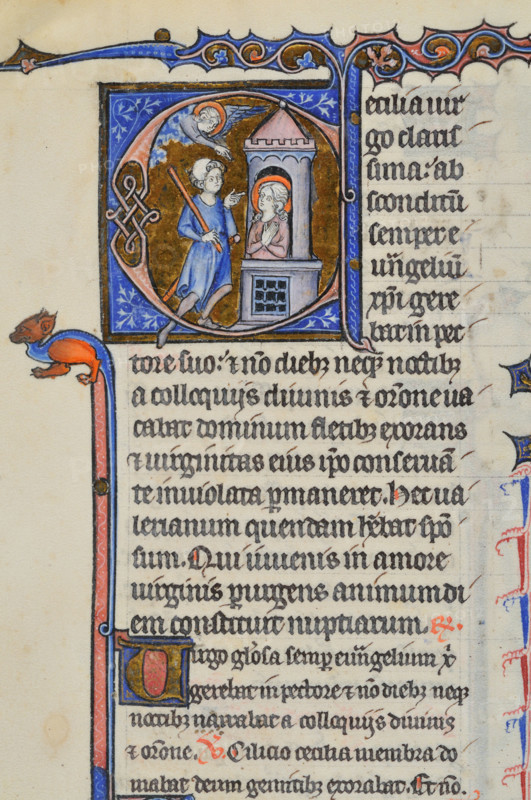 ecilia uir
go clariſ
ſima: ab
ſconditū
ſemper e
uāngeliū
xp̄i gere
bat in pec
tore ſuo: ⁊ nō diebꝫ neqꝫ noctibꝫ
a colloquijs diuinis ⁊ or̄one ua
cabat dominum fletibꝫ exorans
⁊ uirginitas eius ip̄o conſeruā
te inuiolata ꝑmaneret. Hec ua
lerianum quendam hēbat ſpō
ſum. Qui iuuenis in amore
uirginis ꝑurgens animum di
em conſtituit nuptiarum. R̄.
Uirgo gl̄oſa ſemꝑ euāngelium x̄
gerebat in pectore ⁊ nō diebꝫ neqꝫ
noctibꝫ uacabat a colloquijs diuinis
⁊ or̄one. V̄. Cilicio cecilia membra do
mabat deum gemitibꝫ exorabat. Et nō.